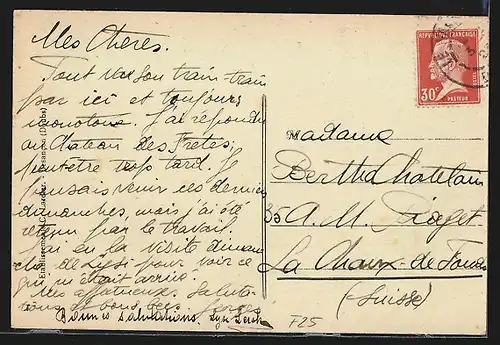 Mes Chères.
Tout va son train-train
par ici et toujours
monotone. J'ai répondu
au Château des Frètes
peut-être trop tard. Je
pensais venir ces derniers
dimanches, mais j'ai été
retenu par le travail.
eu la visite diman-
che de pour voir ce
qui m'était arrivé.
Mes affectueuses saluta-
tions
Bonnes salutations,
RÉPUBLIQUE FRANÇAISE
30c
PASTEUR
Madame
Berthe Chatelain
35 A. M. Piaget
La Chaux-de-Fonds
(Suisse)
F25